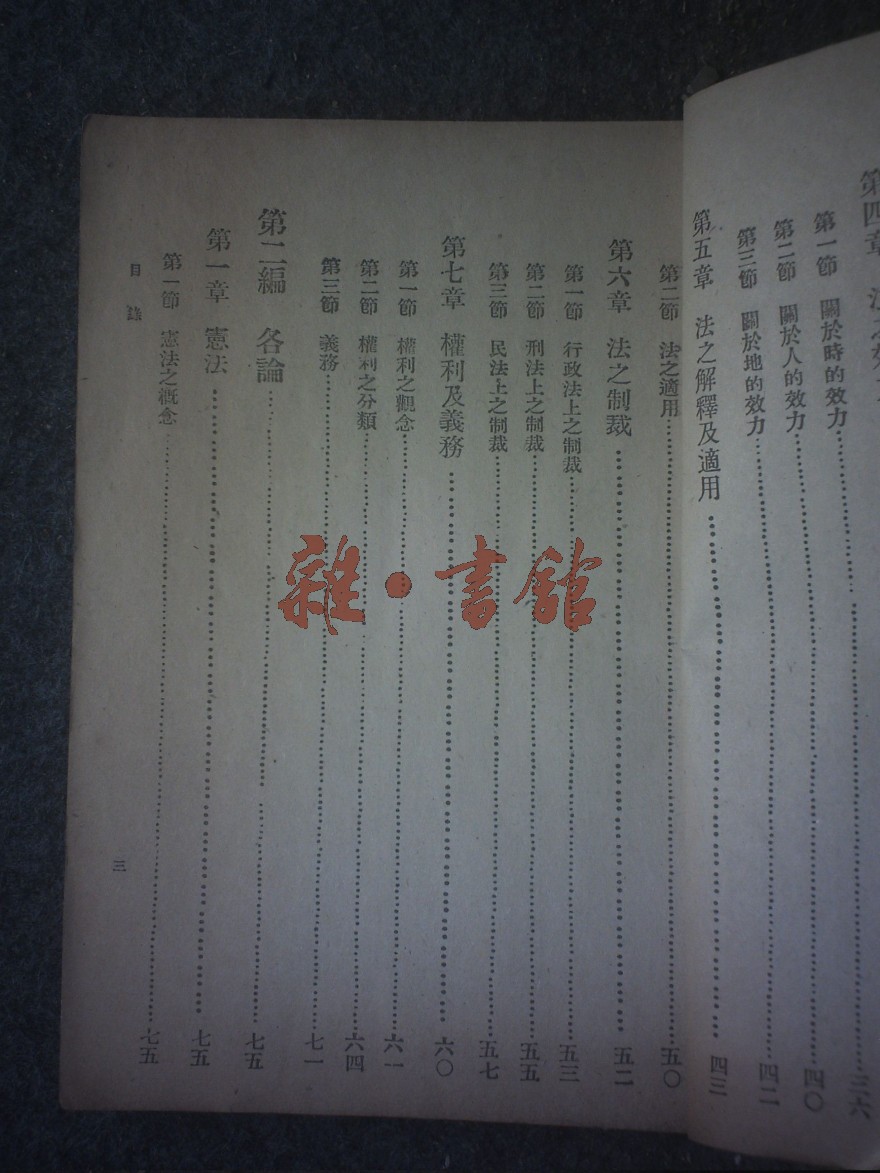 第四章 法之
第一節 關於時的效力……三六
第二節 關於人的效力……四〇
第三節 關於地的效力……四二
第五章 法之解釋及適用……四三
第二節 法之適用……五〇
第六章 法之制裁……五二
第一節 行政法上之制裁……五三
第二節 刑法上之制裁……五五
第三節 民法上之制裁……五七
第七章 權利及義務……六〇
第一節 權利之觀念……六一
第二節 權利之分類……六四
第三節 義務……七一
第二編 各論……七五
第一章 憲法……七五
第一節 憲法之概念……七五
目錄 三
雜·書館